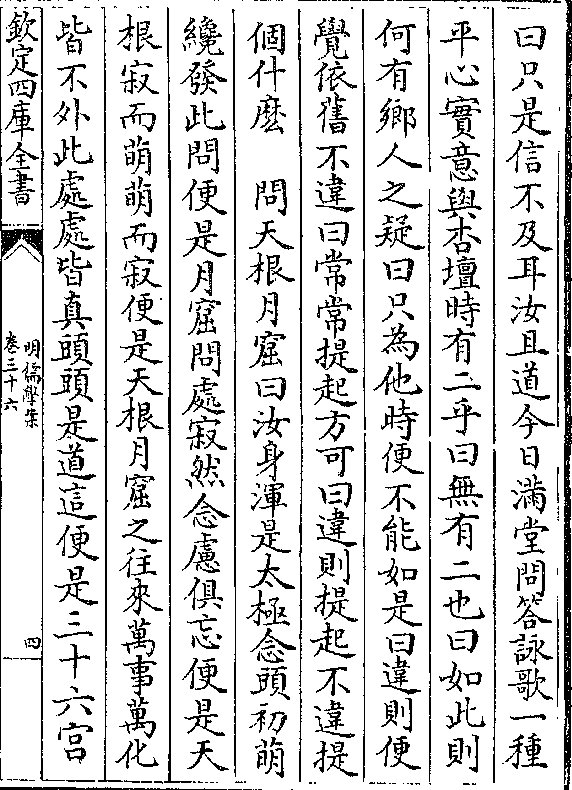 曰只是信不及耳汝且道今日滿堂問答詠歌一種
平心實意與杏壇時有二乎曰無有二也曰如此則
何有鄉人之疑曰只為他時便不能如是曰違則便
覺依舊不違曰常常提起方可曰違則提起不違提
個什麽　問天根月窟曰汝身渾是太極念頭初萌
纔發此問便是月窟問處寂然念慮俱忘便是天
根寂而萌萌而寂便是天根月窟之往來萬事萬化
皆不外此處處皆真頭頭是道這便是三十六宫
欽定四庫全書
明儒學案
卷三十六
四